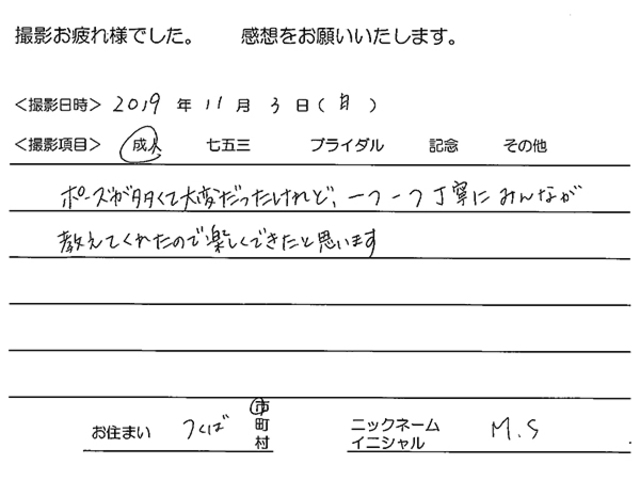 撮影お疲れ様でした。　感想をお願いいたします。
＜撮影日時＞ 2019 年 11 月 3 日（日）
＜撮影項目＞ 成人　七五三　ブライダル　記念　その他
ポーズが多くて大変だったけれど、一つ一つ丁寧にみんなが
教えてくれたので楽しくできたと思います
お住まい　つくば　市町村　ニックネーム イニシャル　M.S